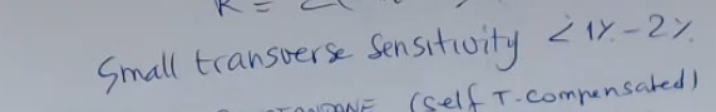 Small transverse Sensitivity < 1% - 2%
(self T-compensated)